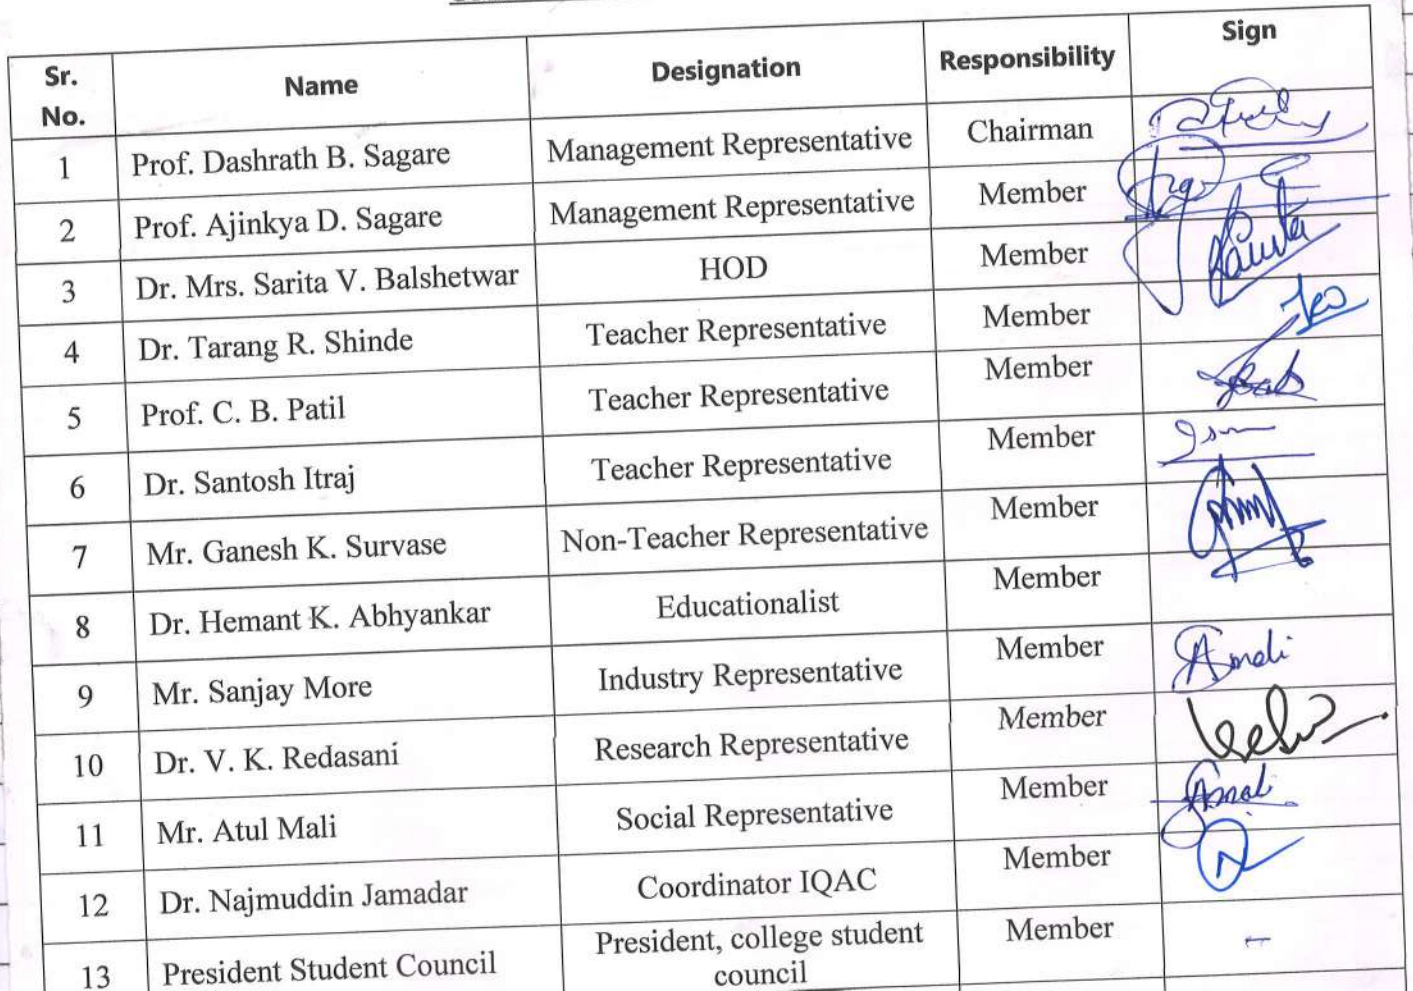 Sr. No. Name Designation Responsibility Sign
1 Prof. Dashrath B. Sagare Management Representative Chairman
2 Prof. Ajinkya D. Sagare Management Representative Member
3 Dr. Mrs. Sarita V. Balshetwar HOD Member
4 Dr. Tarang R. Shinde Teacher Representative Member
5 Prof. C. B. Patil Teacher Representative Member
6 Dr. Santosh Itraj Teacher Representative Member
7 Mr. Ganesh K. Survase Non-Teacher Representative Member
8 Dr. Hemant K. Abhyankar Educationalist Member
9 Mr. Sanjay More Industry Representative Member
10 Dr. V. K. Redasani Research Representative Member
11 Mr. Atul Mali Social Representative Member
12 Dr. Najmuddin Jamadar Coordinator IQAC Member
13 President Student Council President, college student council Member